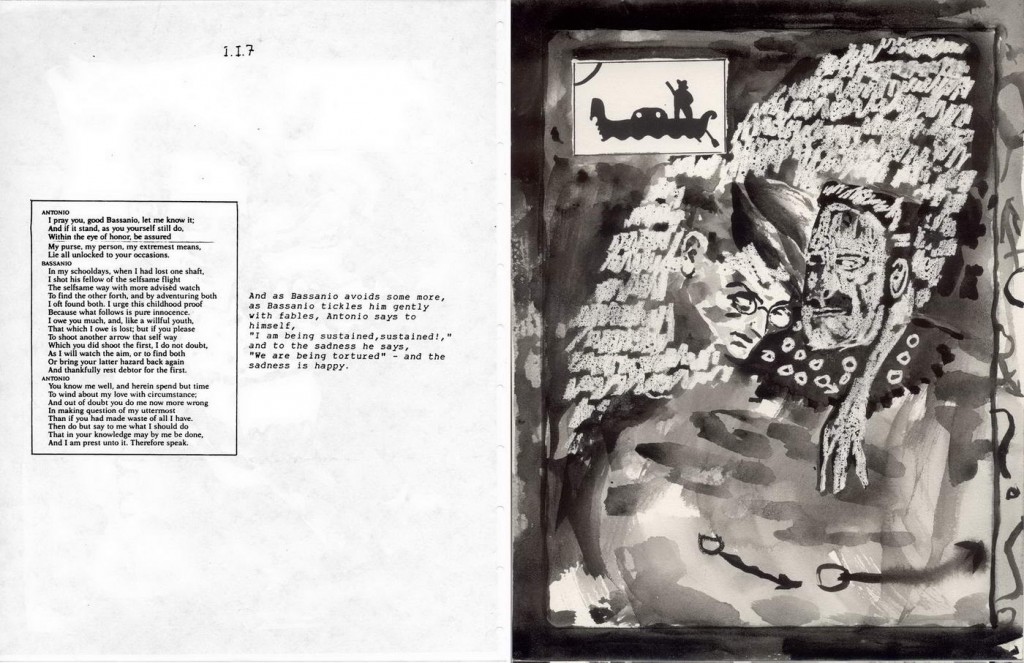 1.I.7
ANTONIO
I pray you, good Bassanio, let me know it;
And if it stand, as you yourself still do,
Within the eye of honor, be assured
My purse, my person, my extremest means,
Lie all unlocked to your occasions.
BASSANIO
In my schooldays, when I had lost one shaft,
I shot his fellow of the selfsame flight
The selfsame way with more advisèd watch
To find the other forth, and by adventuring both
I oft found both. I urge this childhood proof
Because what follows is pure innocence.
I owe you much, and, like a willful youth,
That which I owe is lost; but if you please
To shoot another arrow that self way
Which you did shoot the first, I do not doubt,
As I will watch the aim, or to find both
Or bring your latter hazard back again
And thankfully rest debtor for the first.
ANTONIO
You know me well, and herein spend but time
To wind about my love with circumstance;
And out of doubt you do me now more wrong
In making question of my uttermost
Than if you had made waste of all I have.
Then do but say to me what I should do
That in your knowledge may by me be done,
And I am prest unto it. Therefore speak.
And as Bassanio avoids some more,
as Bassanio tickles him gently
with fables, Antonio says to
himself,
"I am being sustained,sustained!,"
and to the sadness he says,
"We are being tortured" - and the
sadness is happy.